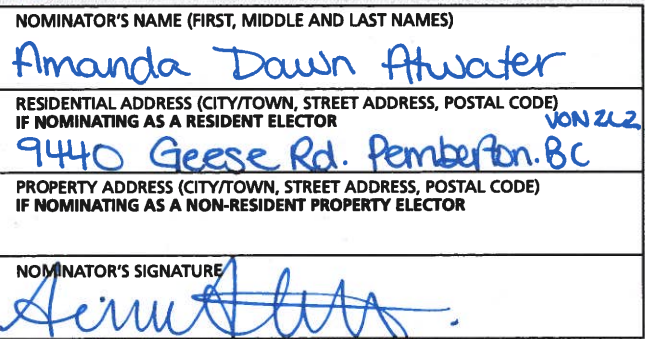 NOMINATOR'S NAME (FIRST, MIDDLE AND LAST NAMES)
Amanda Dawn Atwater
RESIDENTIAL ADDRESS (CITY/TOWN, STREET ADDRESS, POSTAL CODE)
IF NOMINATING AS A RESIDENT ELECTOR
V0N 2L2
9440 Geese Rd. Pemberton. BC
PROPERTY ADDRESS (CITY/TOWN, STREET ADDRESS, POSTAL CODE)
IF NOMINATING AS A NON-RESIDENT PROPERTY ELECTOR
NOMINATOR'S SIGNATURE